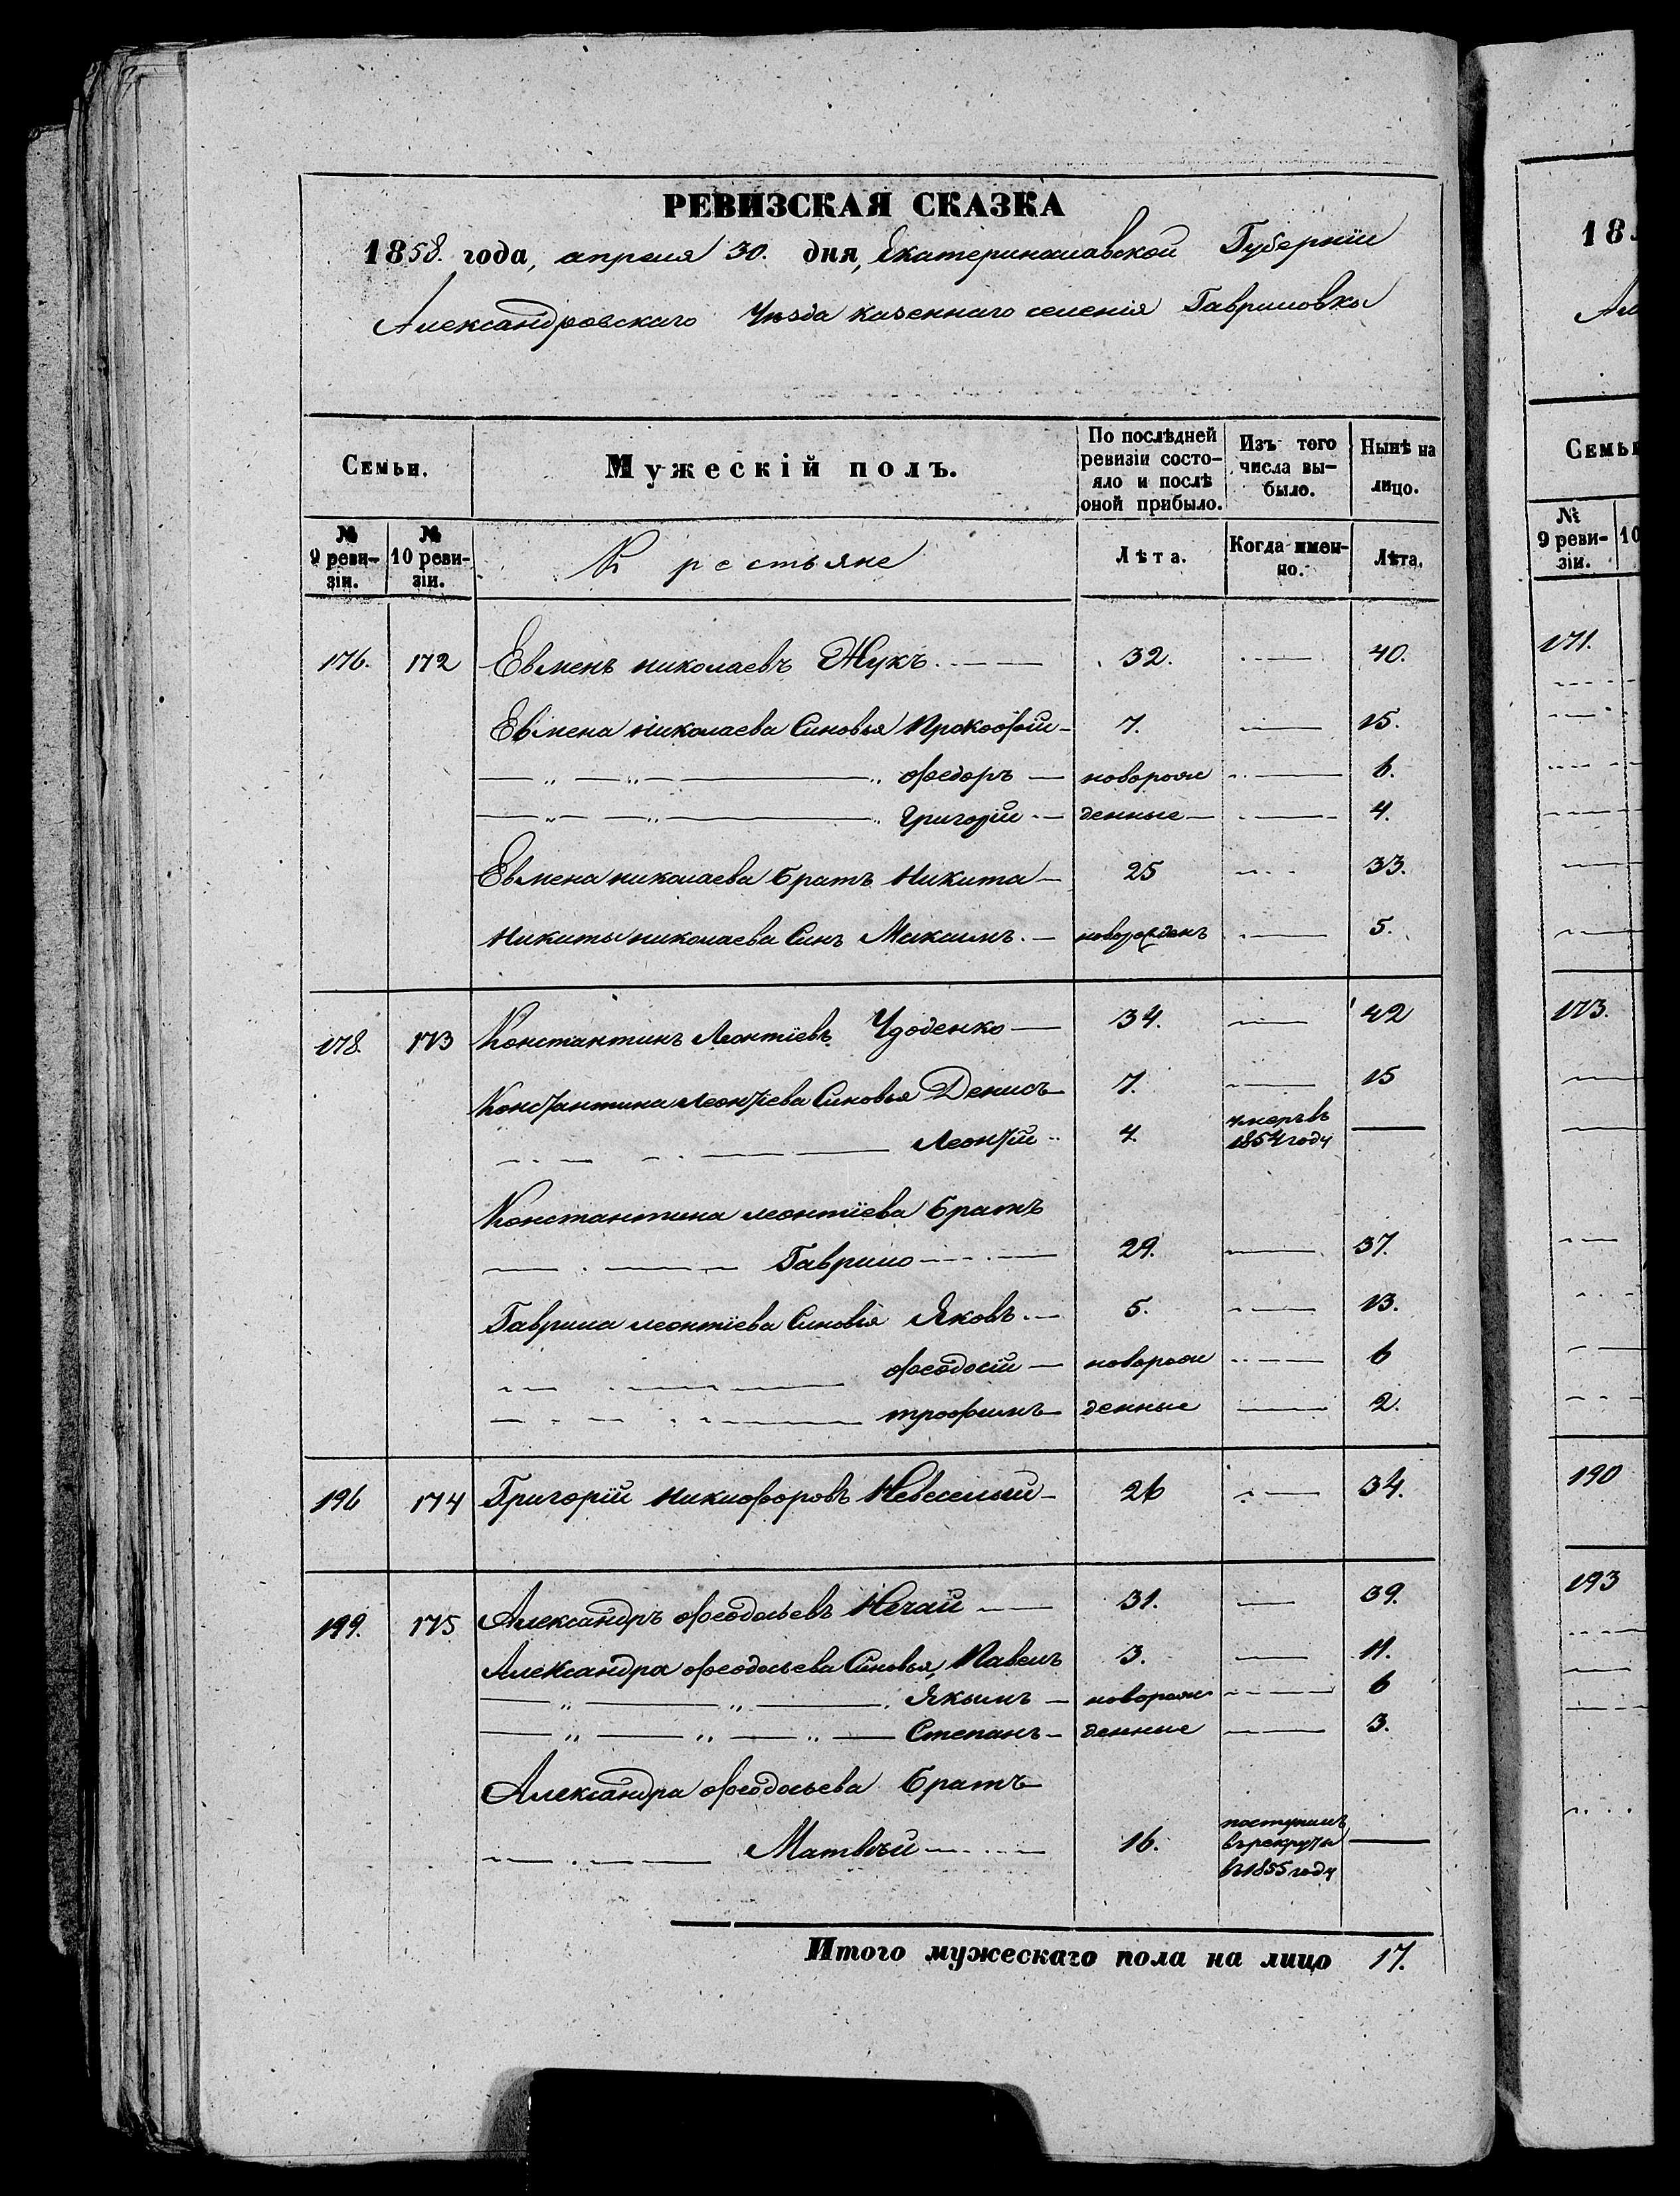 РЕВИЗСКАЯ СКАЗКА
1858. года, апреля 30. дня, Екатеринославской Губернiи
Александровскаго Уѣзда казеннаго селенія Гавриловки
Семьи.
Мужескій полъ.
По послѣдней ревизіи состо-
яло и послѣ
оной прибыло.
Изъ того
числа вы-
было.
Нынѣ на
лицо.
№
9 реви-
зіи.
№
10 реви-
зіи.
Крестьяне
Лѣта.
Когда имен-
но.
Лѣта.
176. 172 Евменъ николаевъ Жукъ 32. 40.
Евмена николаева Синовья Прокофий 7. 15.
федоръ новорож 6.
Григорій денные 4.
Евмена николаева Братъ Никита 25 33.
Никиты николаева Синъ Максимъ. новорожденъ 5.
178. 173 Константинъ Леонтіевъ Удоденко 34. 42
Константина Леонтіева Синовья Денисъ 7. 15
Леонтій 4. умеръ въ
1854 году
Константина леонтіева Братъ
Гаврило 29. 37.
Гаврила леонтіева Синовья Яковъ. 5. 13.
феодосій новорож 6
трофимъ денные 2.
196 174 Григорій Никифоровъ Невеселый 26 34.
199. 175 Александръ феодосьевъ Нечай 31. 39.
Александра феодосьева Синовья, Павелъ 3. 11.
Якымъ новорож 6
Степанъ денные 3.
Александра феодосьева Братъ
Матвѣй 16. поступилъ
въ рекруты
въ 1855 году
Итого мужескаго пола на лицо 17.
18
Семьи
№
9 реви-
зіи.
10
171.
173.
190
193